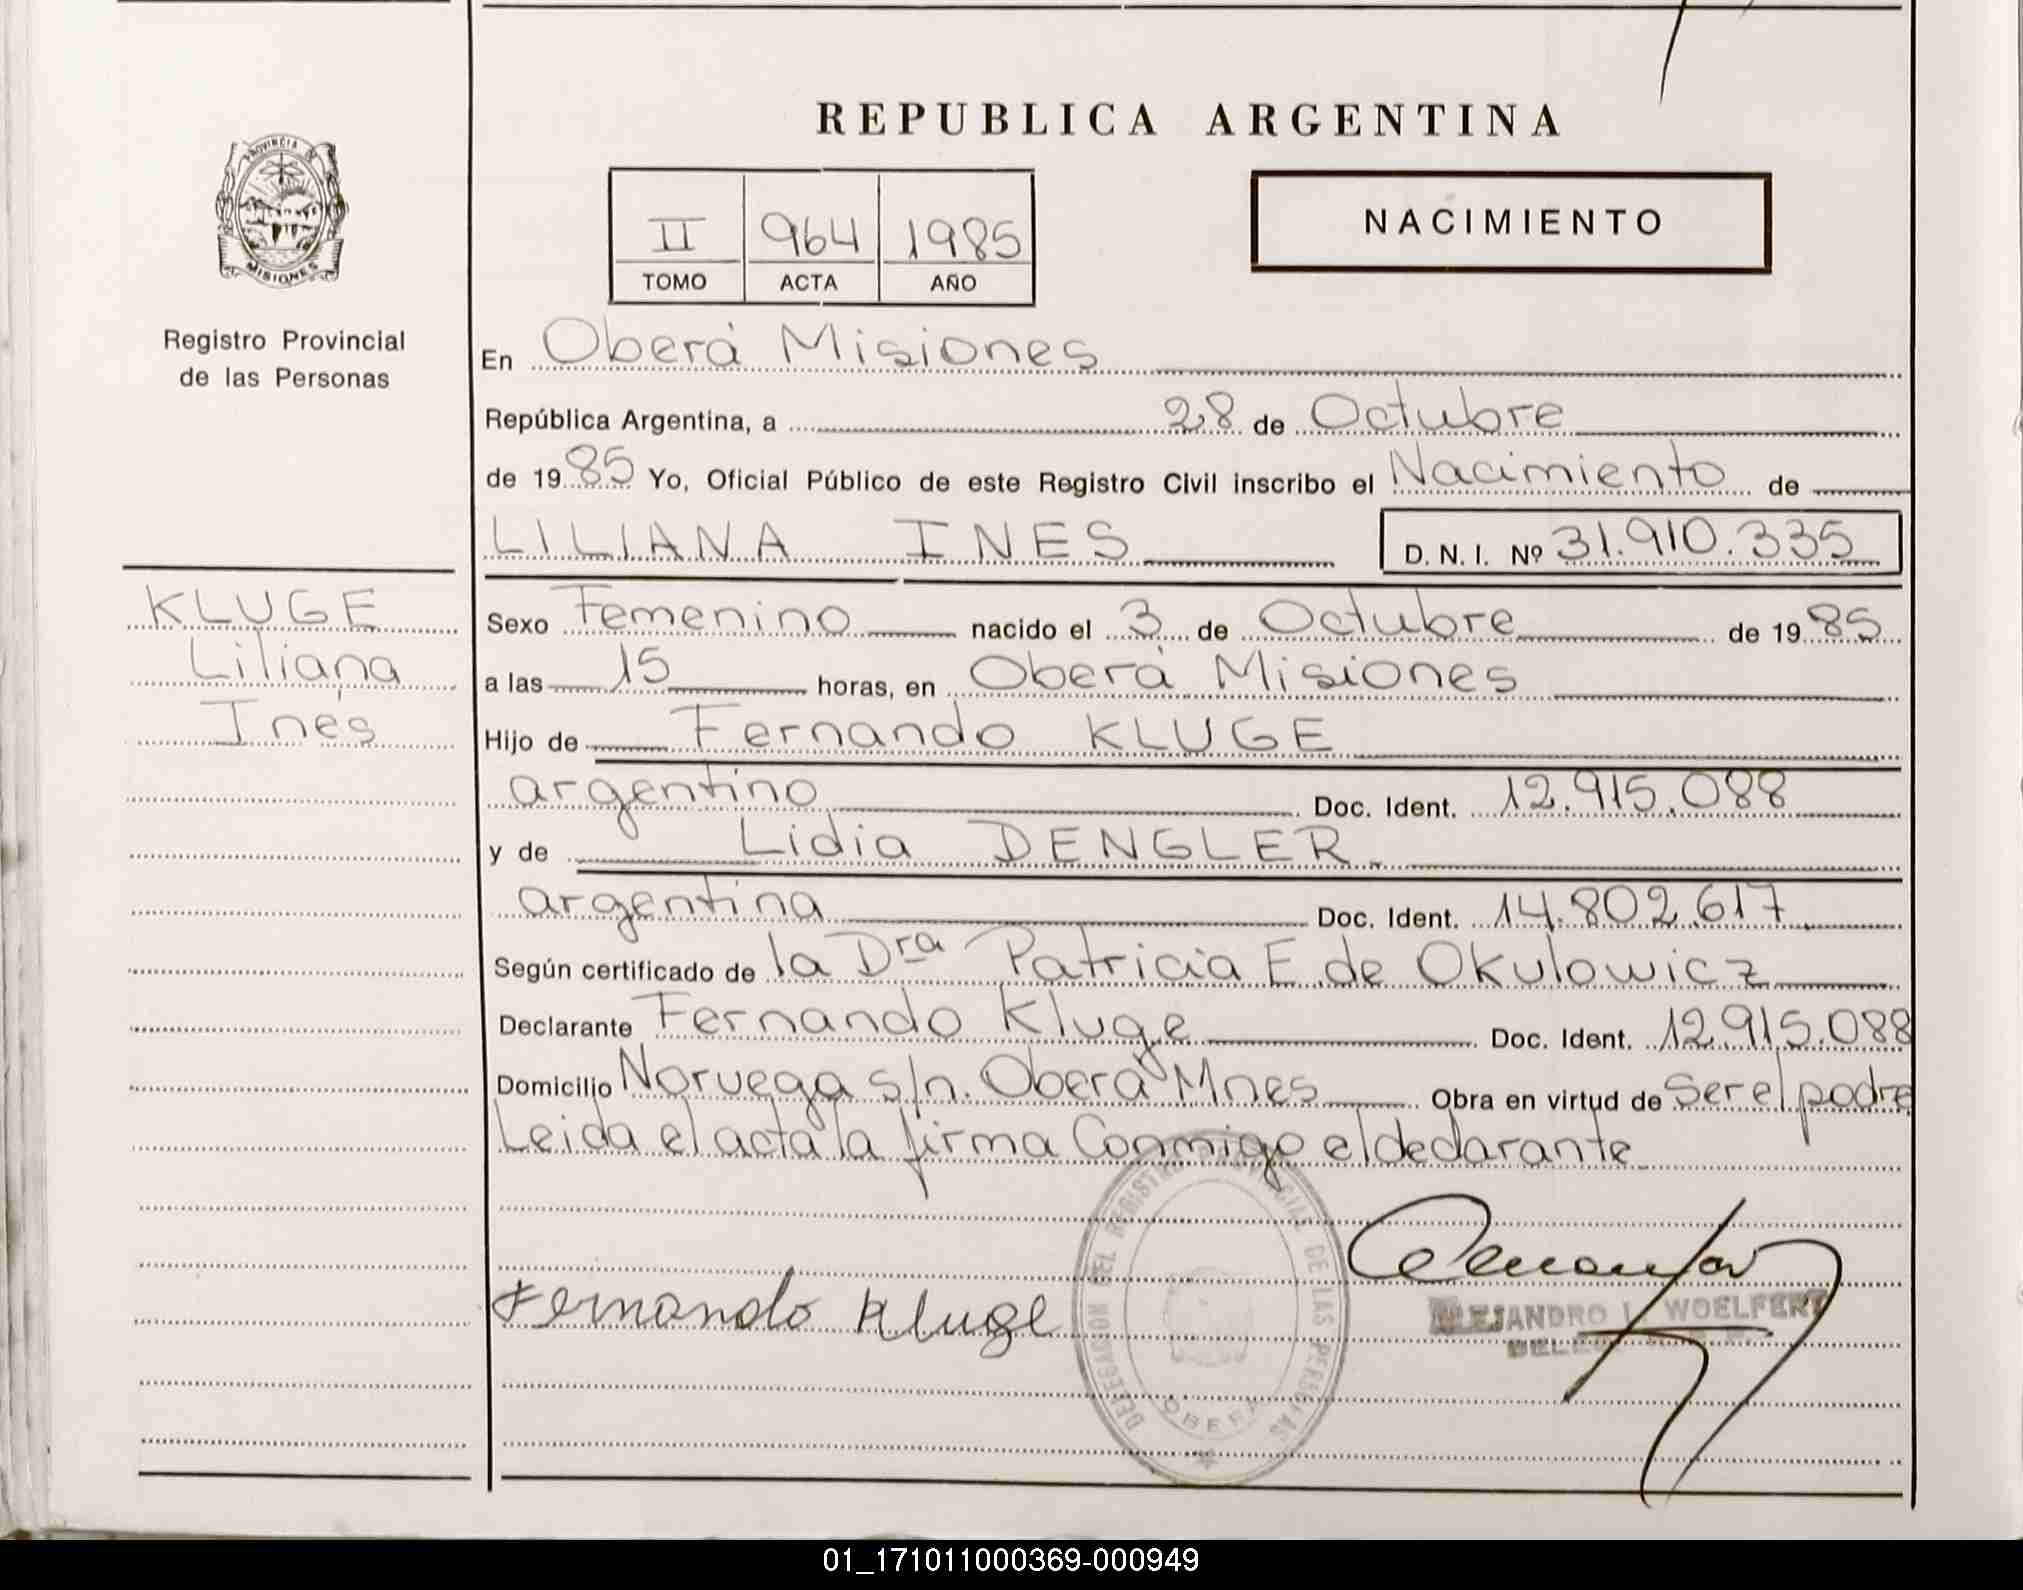 REPUBLICA ARGENTINA
PROVINCIA DE
MISIONES
Registro Provincial
de las Personas
II 964 1985
TOMO ACTA AÑO
NACIMIENTO
En Oberá Misiones
República Argentina, a 28 de Octubre
de 1985 Yo, Oficial Público de este Registro Civil inscribo el Nacimiento de
LILIANA INES D. N. I. Nº 31.910.335
KLUGE
Liliana
Inés
Sexo Femenino nacido el 3 de Octubre de 1985
a las 15 horas, en Oberá Misiones
Hijo de Fernando KLUGE
argentino Doc. Ident. 12.915.088
y de Lidia DENGLER
argentina Doc. Ident. 14.802.617
Según certificado de la Dra Patricia E. de Okulowicz
Declarante Fernando Kluge Doc. Ident. 12.915.088
Domicilio Noruega s/n. Oberá Mnes Obra en virtud de ser el padre
Leida el acta la firma Conmigo el declarante
Fernando Kluge
DELEGACION DEL REGISTRO PROVINCIAL DE LAS PERSONAS
OBERA
ALEJANDRO L. WOELFERT
01_171011000369-000949